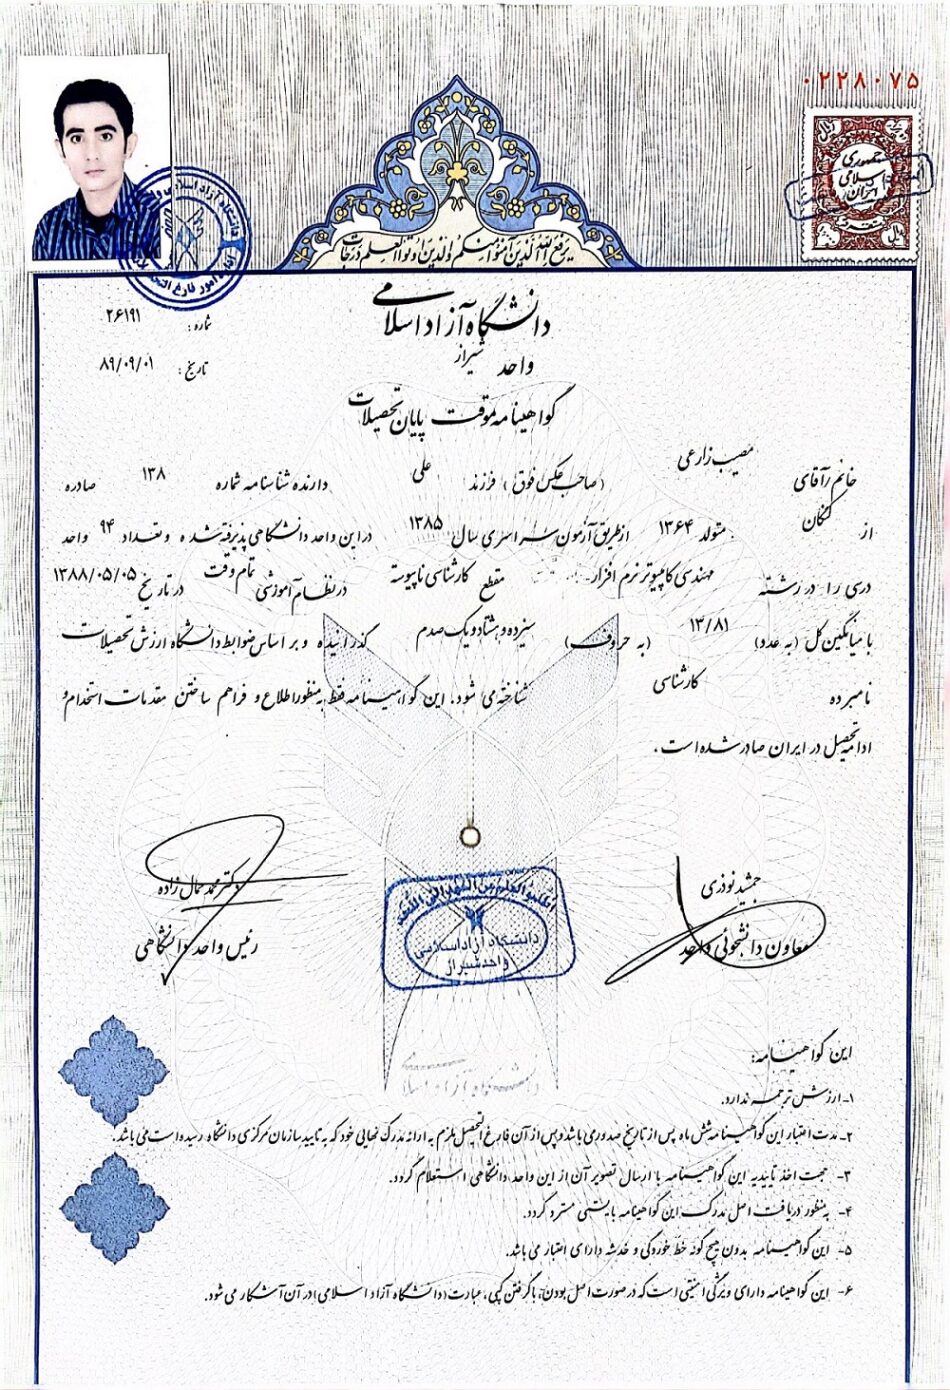 ۰۲۲۸۰۷۵
جمهوری
اسلامی
ایران
یرفع الله الذین آمنوا منکم والذین اوتوا العلم درجات
دانشگاه آزاد اسلامی
واحد شیراز
شماره : ۲۶۱۹۱
تاریخ : ۸۹/۰۹/۰۱
گواهینامه موقت پایان تحصیلات
خانم / آقای مصیب زارعی (صاحب عکس فوق) فرزند علی دارنده شناسنامه شماره ۱۳۸ صادره
از کنگان متولد ۱۳۶۴ از طریق آزمون سراسری سال ۱۳۸۵ در این واحد دانشگاهی پذیرفته شده و تعداد ۹۴ واحد
درسی را در رشته مهندسی کامپیوتر نرم افزار مقطع کارشناسی ناپیوسته در نظام آموزشی تمام وقت در تاریخ ۱۳۸۸/۰۵/۰۵
با میانگین کل (به عدد) ۱۳/۸۱ (به حروف) سیزده و هشتاد و یک صدم گذرانیده و بر اساس ضوابط دانشگاه ارزش تحصیلات
نامبرده کارشناسی شناخته می شود. این گواهینامه فقط به منظور اطلاع و فراهم ساختن مقدمات استخدام و
ادامه تحصیل در ایران صادر شده است.
جمشید نوذری
معاون دانشجوئی واحد
دکتر محمد جمال زاده
رئیس واحد دانشگاهی
اطلبوا العلم من المهد الی اللحد
دانشگاه آزاد اسلامی
واحد شیراز
دانشگاه آزاد اسلامی
این گواهینامه:
۱- ارزش ترجمه ندارد.
۲- مدت اعتبار این گواهینامه شش ماه پس از تاریخ صدور می باشد و پس از آن فارغ التحصیل ملزم به ارائه مدرک نهایی خود که به تایید سازمان مرکزی دانشگاه رسیده است می باشد.
۳- جهت اخذ تاییدیه این گواهینامه با ارسال تصویر آن از این واحد دانشگاهی استعلام گردد.
۴- به منظور دریافت اصل مدرک این گواهینامه بایستی مسترد گردد.
۵- این گواهینامه بدون هیچ گونه خط خوردگی و خدشه دارای اعتبار می باشد.
۶- این گواهینامه دارای ویژگی امنیتی است که در صورت اصل بودن، با گرفتن کپی، عبارت (دانشگاه آزاد اسلامی) در آن آشکار می شود.